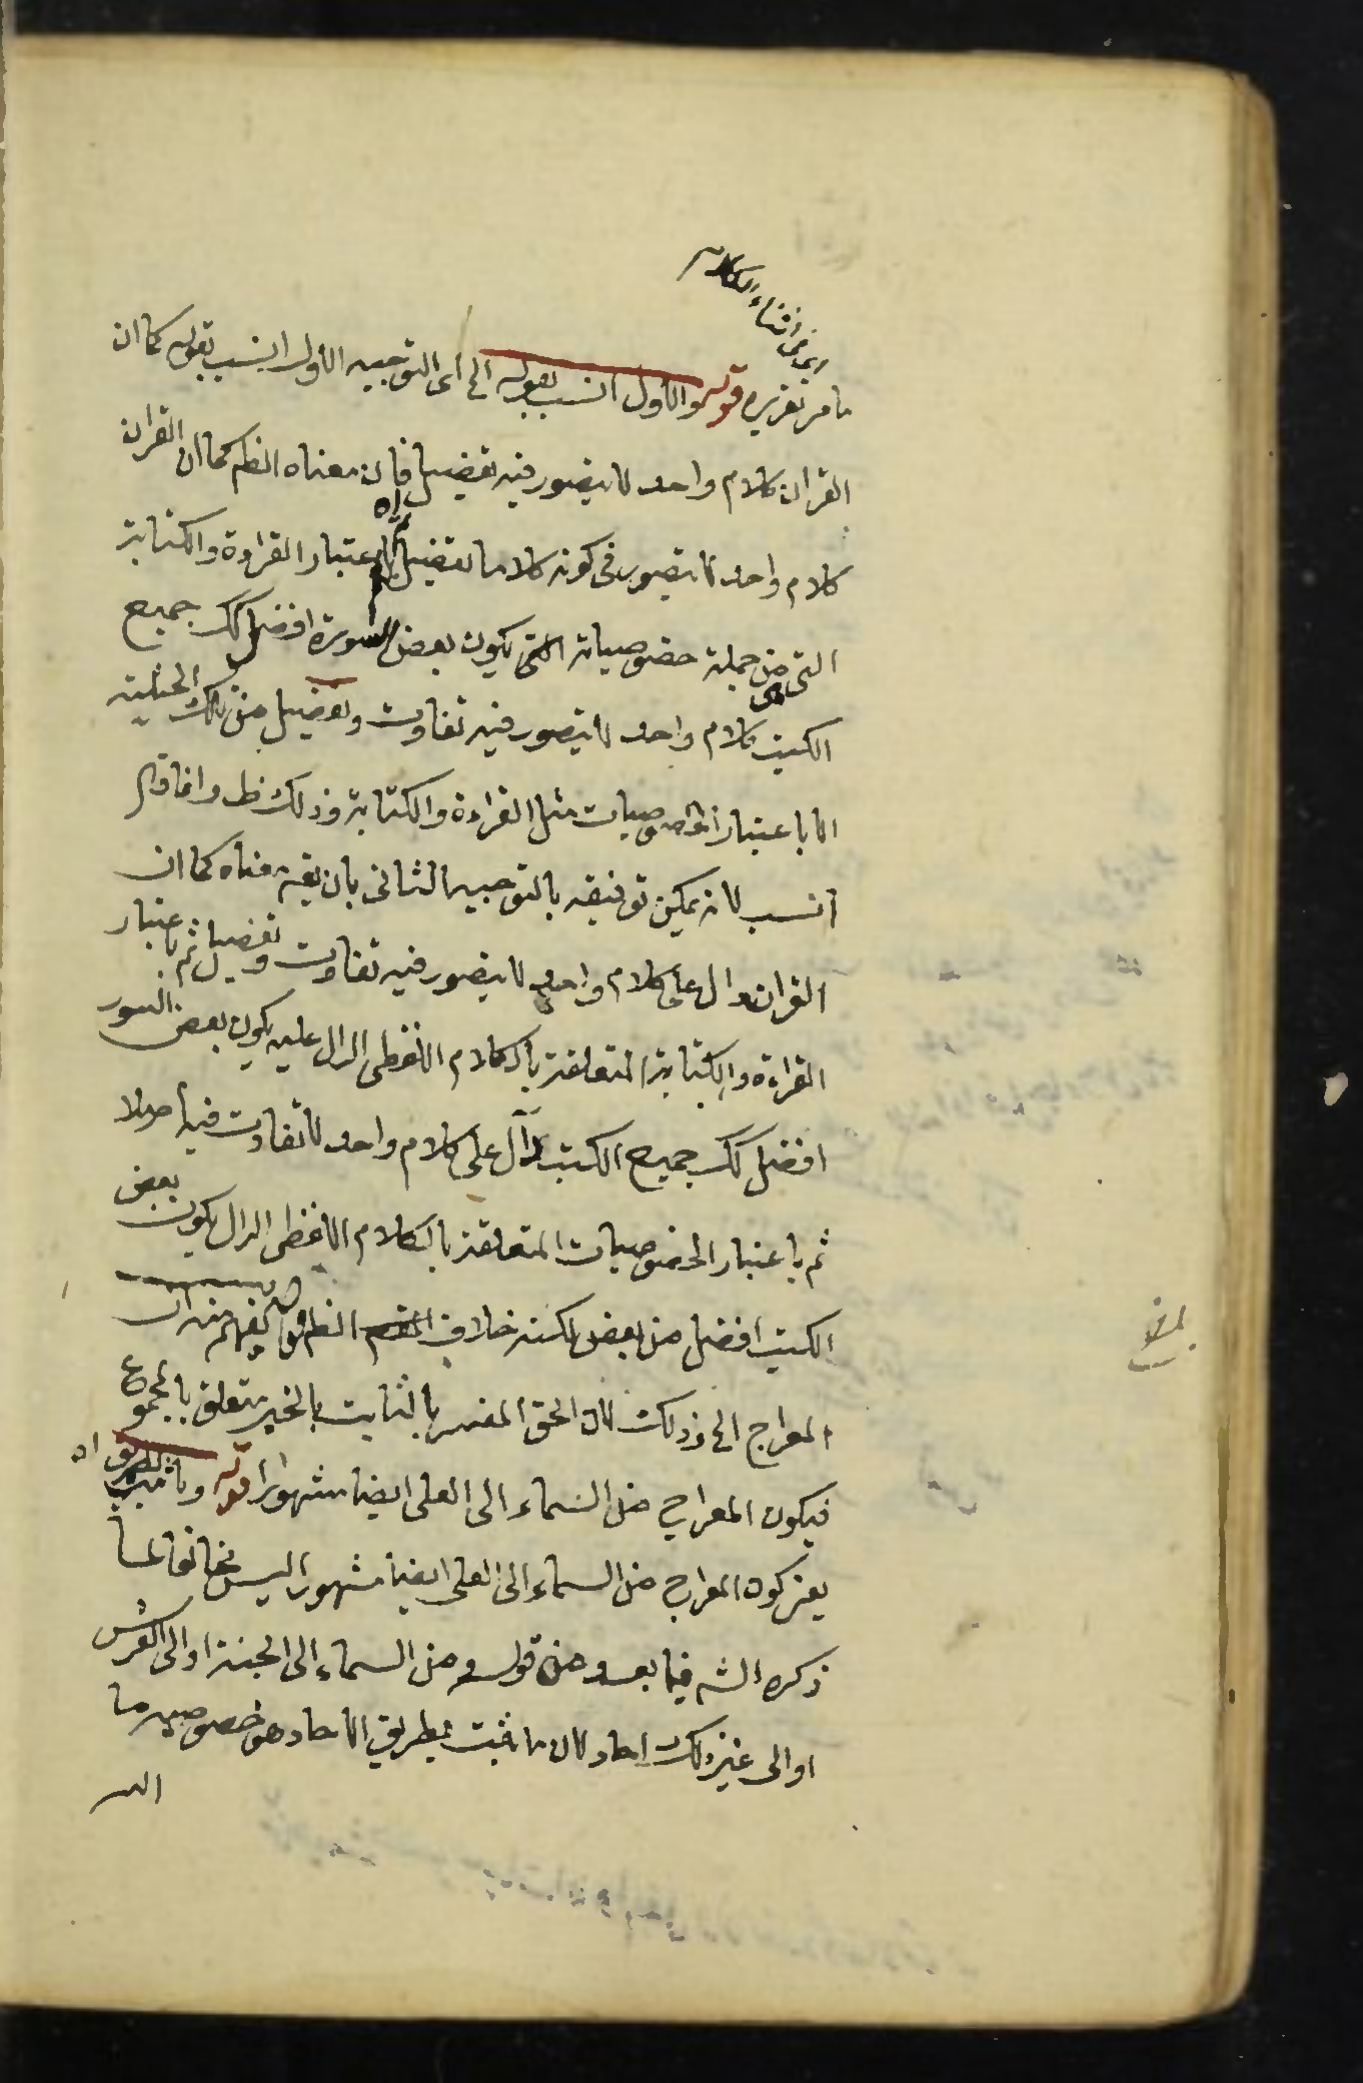 اى فى اثناء الكلام
ما مر تقريره قوله والاول انسب بقوله الخ اى التوجيه الاول انسب بقوله كما ان
القران كلام واحد لا يتصور فيه تفضيل فان معناه الظم كما ان القران
كلام واحد لا يتصور فى كونه كلاما تفضيل باعتبار القراءة والكتابة
التى من جملة خصوصياته التى يكون بعض السورة افضل كك جميع
الكتب كلام واحد لا يتصور فيه تفاوت وتفضيل من تلك الحيثية
الا باعتبار الخصوصيات مثل القراءة والكتابة وذلك ظ وانما قال
انسب لانه يمكن توفيقه بالتوجيه الثانى بان يقم معناه كما ان
القران دال على كلام واحد لا يتصور فيه تفاوت وتفضيل ثم باعتبار
القراءة والكتابة المتعلقة بالكلام اللفظى الدال عليه يكون بعض السور
افضل كك جميع الكتب دال على كلام واحد لا تفاوت فيه اصلا
ثم باعتبار الخصوصيات المتعلقة بالكلام اللفظى الدال يكون بعض
الكتب افضل من بعض لكنه خلاف الظم قوله يفهم منه ان
المعراج الخ وذلك لان الحق المفسر بالثابت بالخبر متعلق بالمجموع
فيكون المعراج من السماء الى العلى ايضا مشهورا قوله وما ثبت بطريق اه
يعنى كون المعراج من السماء الى العلى ايضا مشهورا ليس مخالفا لما
ذكره الشم فيما بعد من قوله ومن السماء الى الجنة او الى العرش
او الى غير ذلك احاد لان ما ثبت بطريق الاحاد هو خصوصية ما
اليه
بلغ